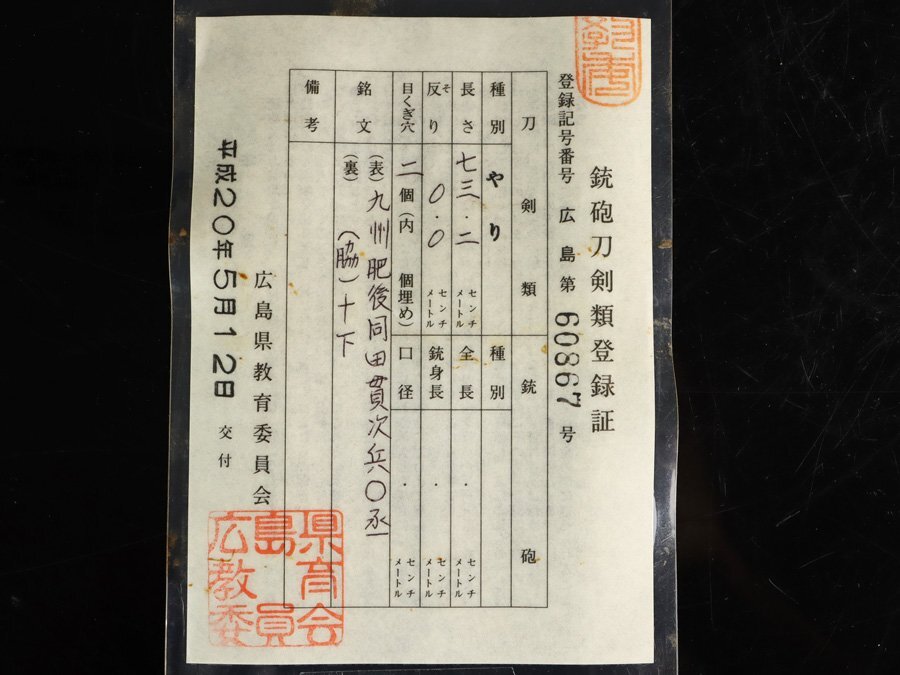 銃砲刀剣類登録証
登録記号番号 広島 第 60867 号
刀剣類
銃砲
種別 やり
種別
長さ 七三.二 センチメートル
全長 . センチメートル
反り そ 0.0 センチメートル
銃身長 . センチメートル
目くぎ穴 二個(内 個埋め)
口径 . センチメートル
銘文
(表)九州肥後同田貫次兵〇丞
(裏)
(脇)十下
備考
広島県教育委員会
平成20年5月12日 交付
広島県教育委員会